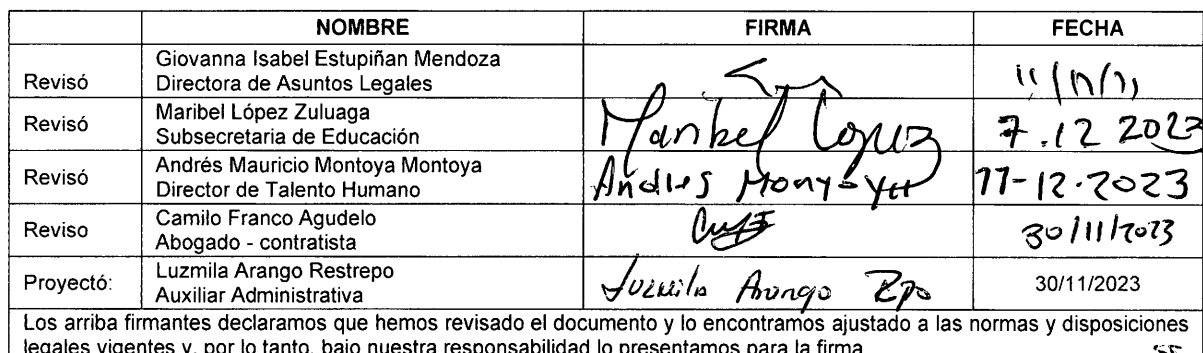 NOMBRE FIRMA FECHA
Giovanna Isabel Estupiñan Mendoza
Revisó Directora de Asuntos Legales
Maribel López Zuluaga
Revisó Subsecretaria de Educación Maribel Lopez 7.12 2023
Andrés Mauricio Montoya Montoya
Revisó Director de Talento Humano Andres Montoya 11-12-2023
Camilo Franco Agudelo
Reviso Abogado - contratista 30/11/2023
Luzmila Arango Restrepo
Proyectó: Auxiliar Administrativa Luzmila Arango Rpo 30/11/2023
Los arriba firmantes declaramos que hemos revisado el documento y lo encontramos ajustado a las normas y disposiciones
legales vigentes y, por lo tanto, bajo nuestra responsabilidad lo presentamos para la firma.